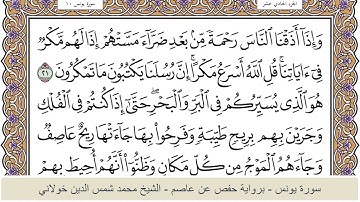 الجزء الحادي عشر
سورة يونس ١٠
وَإِذَآ أَذَقْنَا ٱلنَّاسَ رَحْمَةً مِّنۢ بَعْدِ ضَرَّآءَ مَسَّتْهُمْ إِذَا لَهُم مَّكْرٌ
فِىٓ ءَايَاتِنَا ۚ قُلِ ٱللَّهُ أَسْرَعُ مَكْرًا ۚ إِنَّ رُسُلَنَا يَكْتُبُونَ مَا تَمْكُرُونَ ٢١
هُوَ ٱلَّذِى يُسَيِّرُكُمْ فِى ٱلْبَرِّ وَٱلْبَحْرِ ۖ حَتَّىٰٓ إِذَا كُنتُمْ فِى ٱلْفُلْكِ
وَجَرَيْنَ بِهِم بِرِيحٍ طَيِّبَةٍ وَفَرِحُوا۟ بِهَا جَآءَتْهَا رِيحٌ عَاصِفٌ
وَجَآءَهُمُ ٱلْمَوْجُ مِن كُلِّ مَكَانٍ وَظَنُّوٓا۟ أَنَّهُمْ أُحِيطَ بِهِمْ
سورة يونس - برواية حفص عن عاصم - الشيخ محمد شمس الدين خولاني